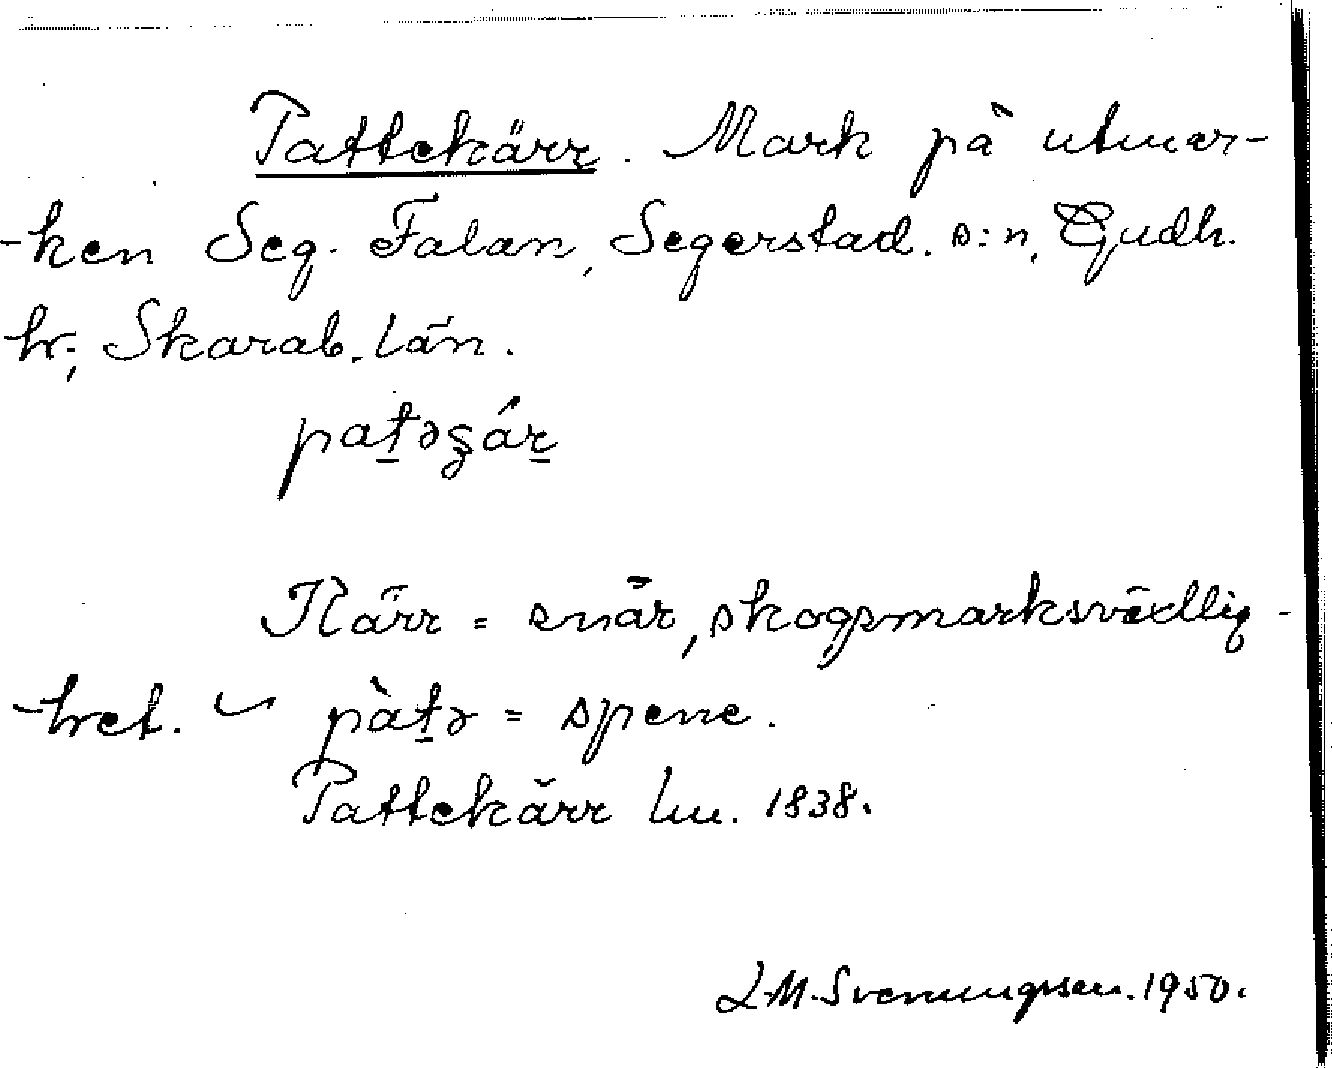 Pattekärr. Mark på utmar-
-ken Seg. Falan, Segerstad. s:n, Gudh.
hr; Skarab. län.
patəʂár
Kärr = snår, skogsmarksväxllig-
-het. ~ pàtə = spene.
Pattekärr lm. 1838.
L.M. Svenungsson. 1950.